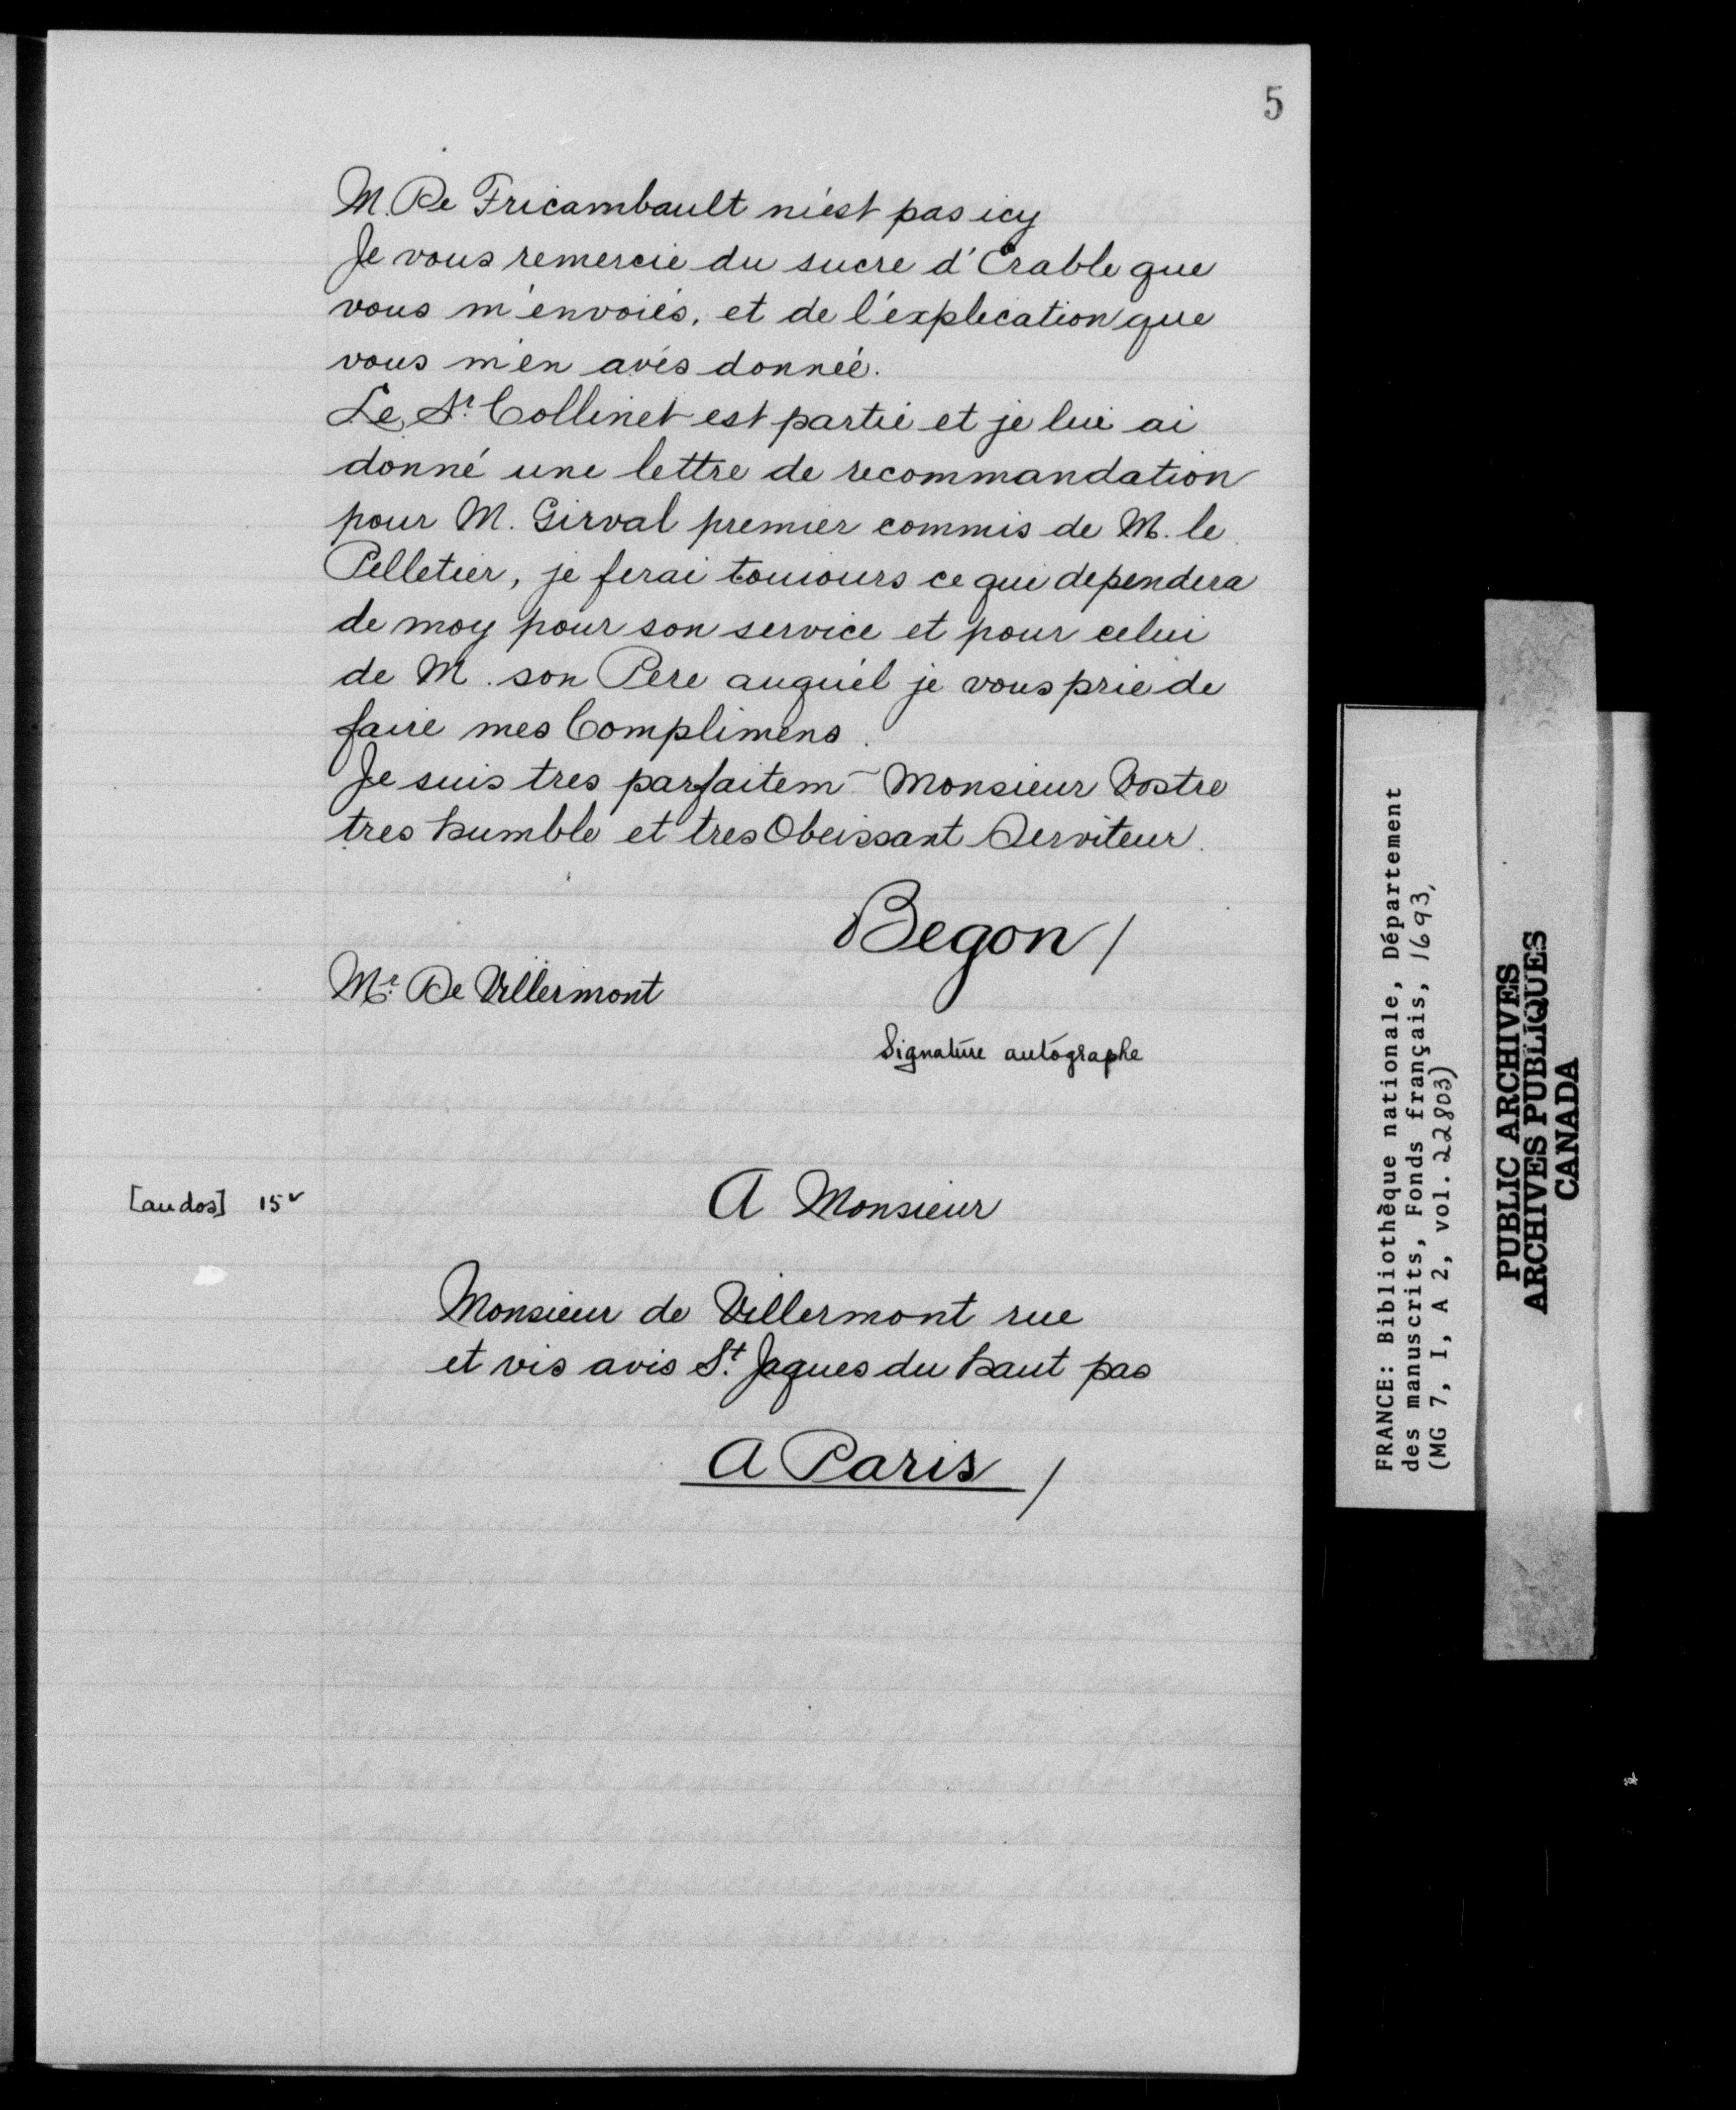 5
M. De Fricambault n'est pas icy
Je vous remercie du sucre d'Erable que
vous m'envoiés, et de l'éxplication que
vous m'en avés donnée.
Le Sr. Collinet est parti et je lui ai
donné une lettre de recommandation
pour M. Girval premier commis de M. le
Pelletier, je ferai touiours ce qui dependera
de moy pour son service et pour celui
de M. son Pere auquél je vous prie de
faire mes Complimens.
Je suis tres parfaitem~ Monsieur Vostre
tres humble et tres Obeissant Serviteur.
Begon /
Mr. De Villermont
Signature autographe
[au dos] 15v
A Monsieur
Monsieur de Villermont rue
et vis avis St. Jaques du haut pas
A Paris /
FRANCE: Bibliothèque nationale, Département
des manuscrits, Fonds français, 1693,
(MG 7, I, A 2, vol. 22803)
PUBLIC ARCHIVES
ARCHIVES PUBLIQUES
CANADA